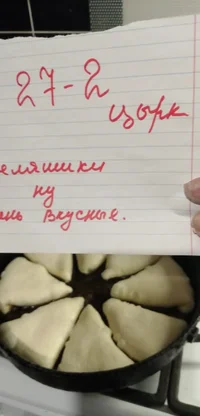 27-2
цырк
еляшики
ну
нь вкусные.